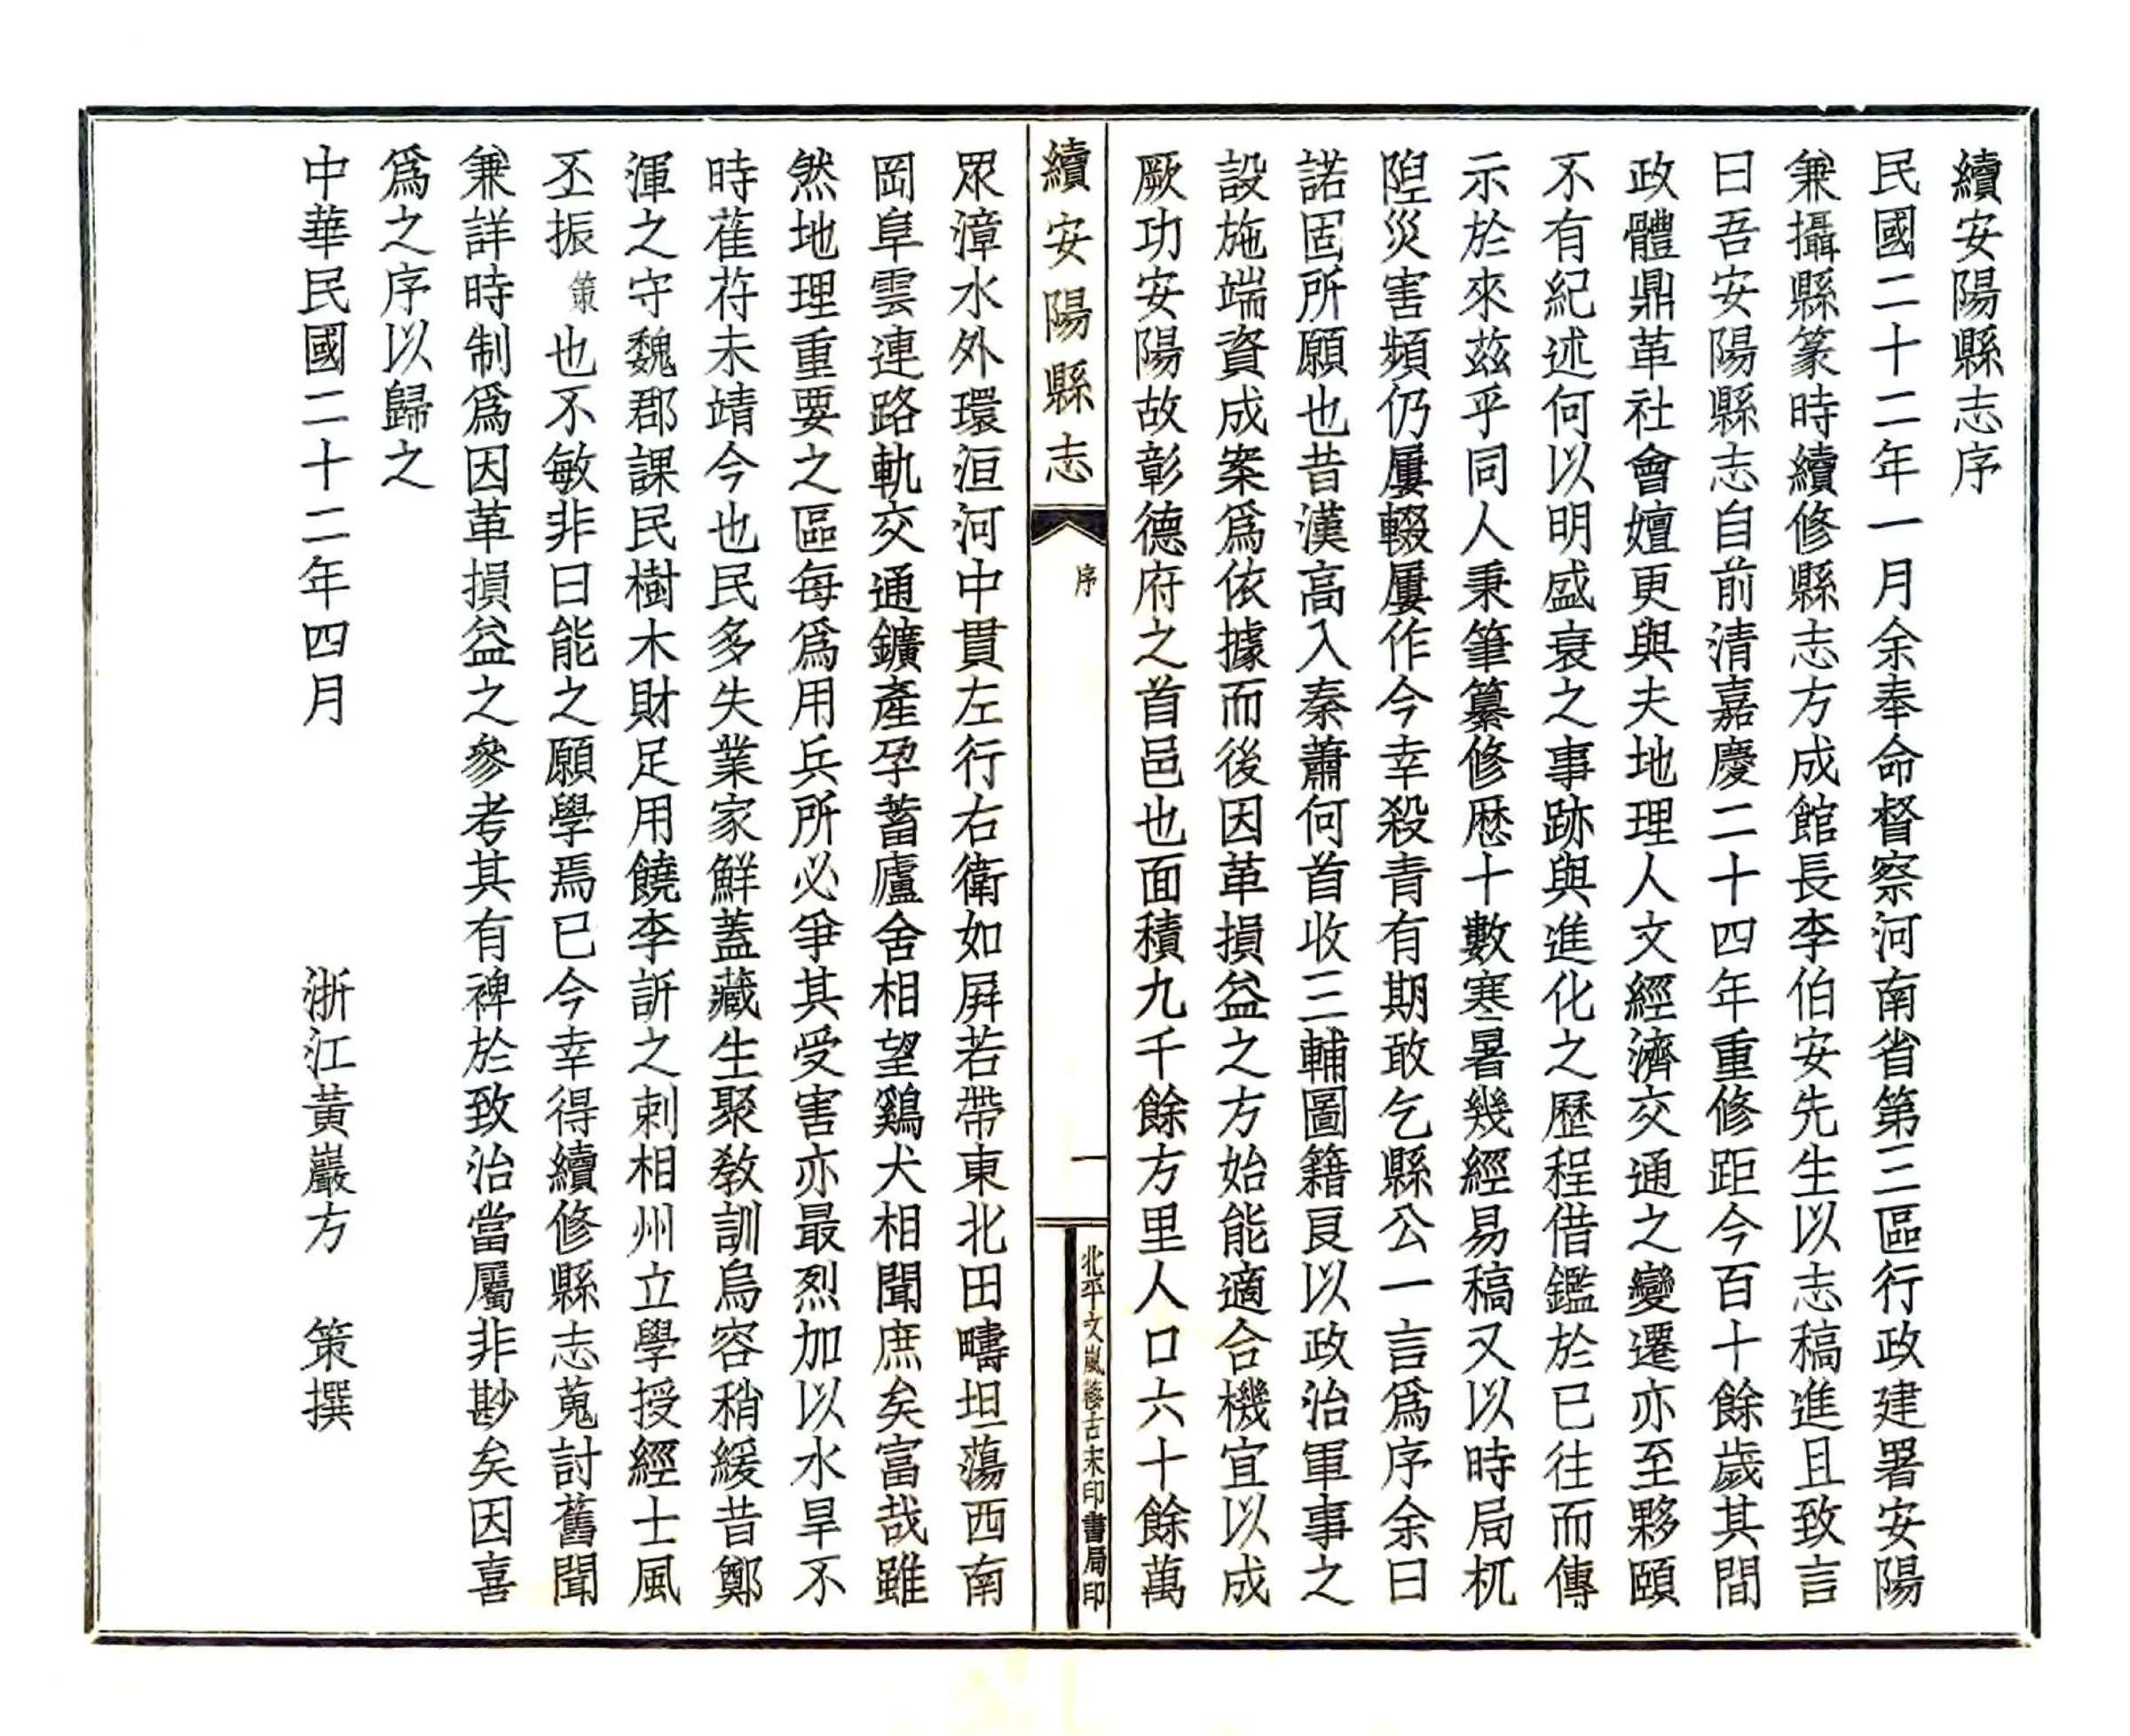 續安陽縣志序
民國二十二年一月余奉命督察河南省第三區行政建署安陽
兼攝縣篆時續修縣志方成館長李伯安先生以志稿進且致言
曰吾安陽縣志自前清嘉慶二十四年重修距今百十餘歲其間
政體鼎革社會嬗更與夫地理人文經濟交通之變遷亦至夥頤
不有紀述何以明盛衰之事跡與進化之歷程借鑑於已往而傳
示於來茲乎同人秉筆纂修歷十數寒暑幾經易稿又以時局杌
隉災害頻仍屢輟屢作今幸殺青有期敢乞縣公一言爲序余曰
諾固所願也昔漢高入秦蕭何首收三輔圖籍良以政治軍事之
設施端資成案爲依據而後因革損益之方始能適合機宜以成
厥功安陽故彰德府之首邑也面積九千餘方里人口六十餘萬
續安陽縣志
序
一
北平文嵐簃古宋印書局印
眾漳水外環洹河中貫左行右衛如屛若帶東北田疇坦蕩西南
岡阜雲連路軌交通鑛產孕蓄廬舍相望鷄犬相聞庶矣富哉雖
然地理重要之區每爲用兵所必爭其受害亦最烈加以水旱不
時萑苻未靖今也民多失業家鮮蓋藏生聚敎訓烏容稍緩昔鄭
渾之守魏郡課民樹木財足用饒李訢之刺相州立學授經士風
丕振策也不敏非曰能之願學焉已今幸得續修縣志蒐討舊聞
兼詳時制爲因革損益之參考其有裨於致治當屬非尠矣因喜
爲之序以歸之
中華民國二十二年四月 浙江黃巖方 策撰